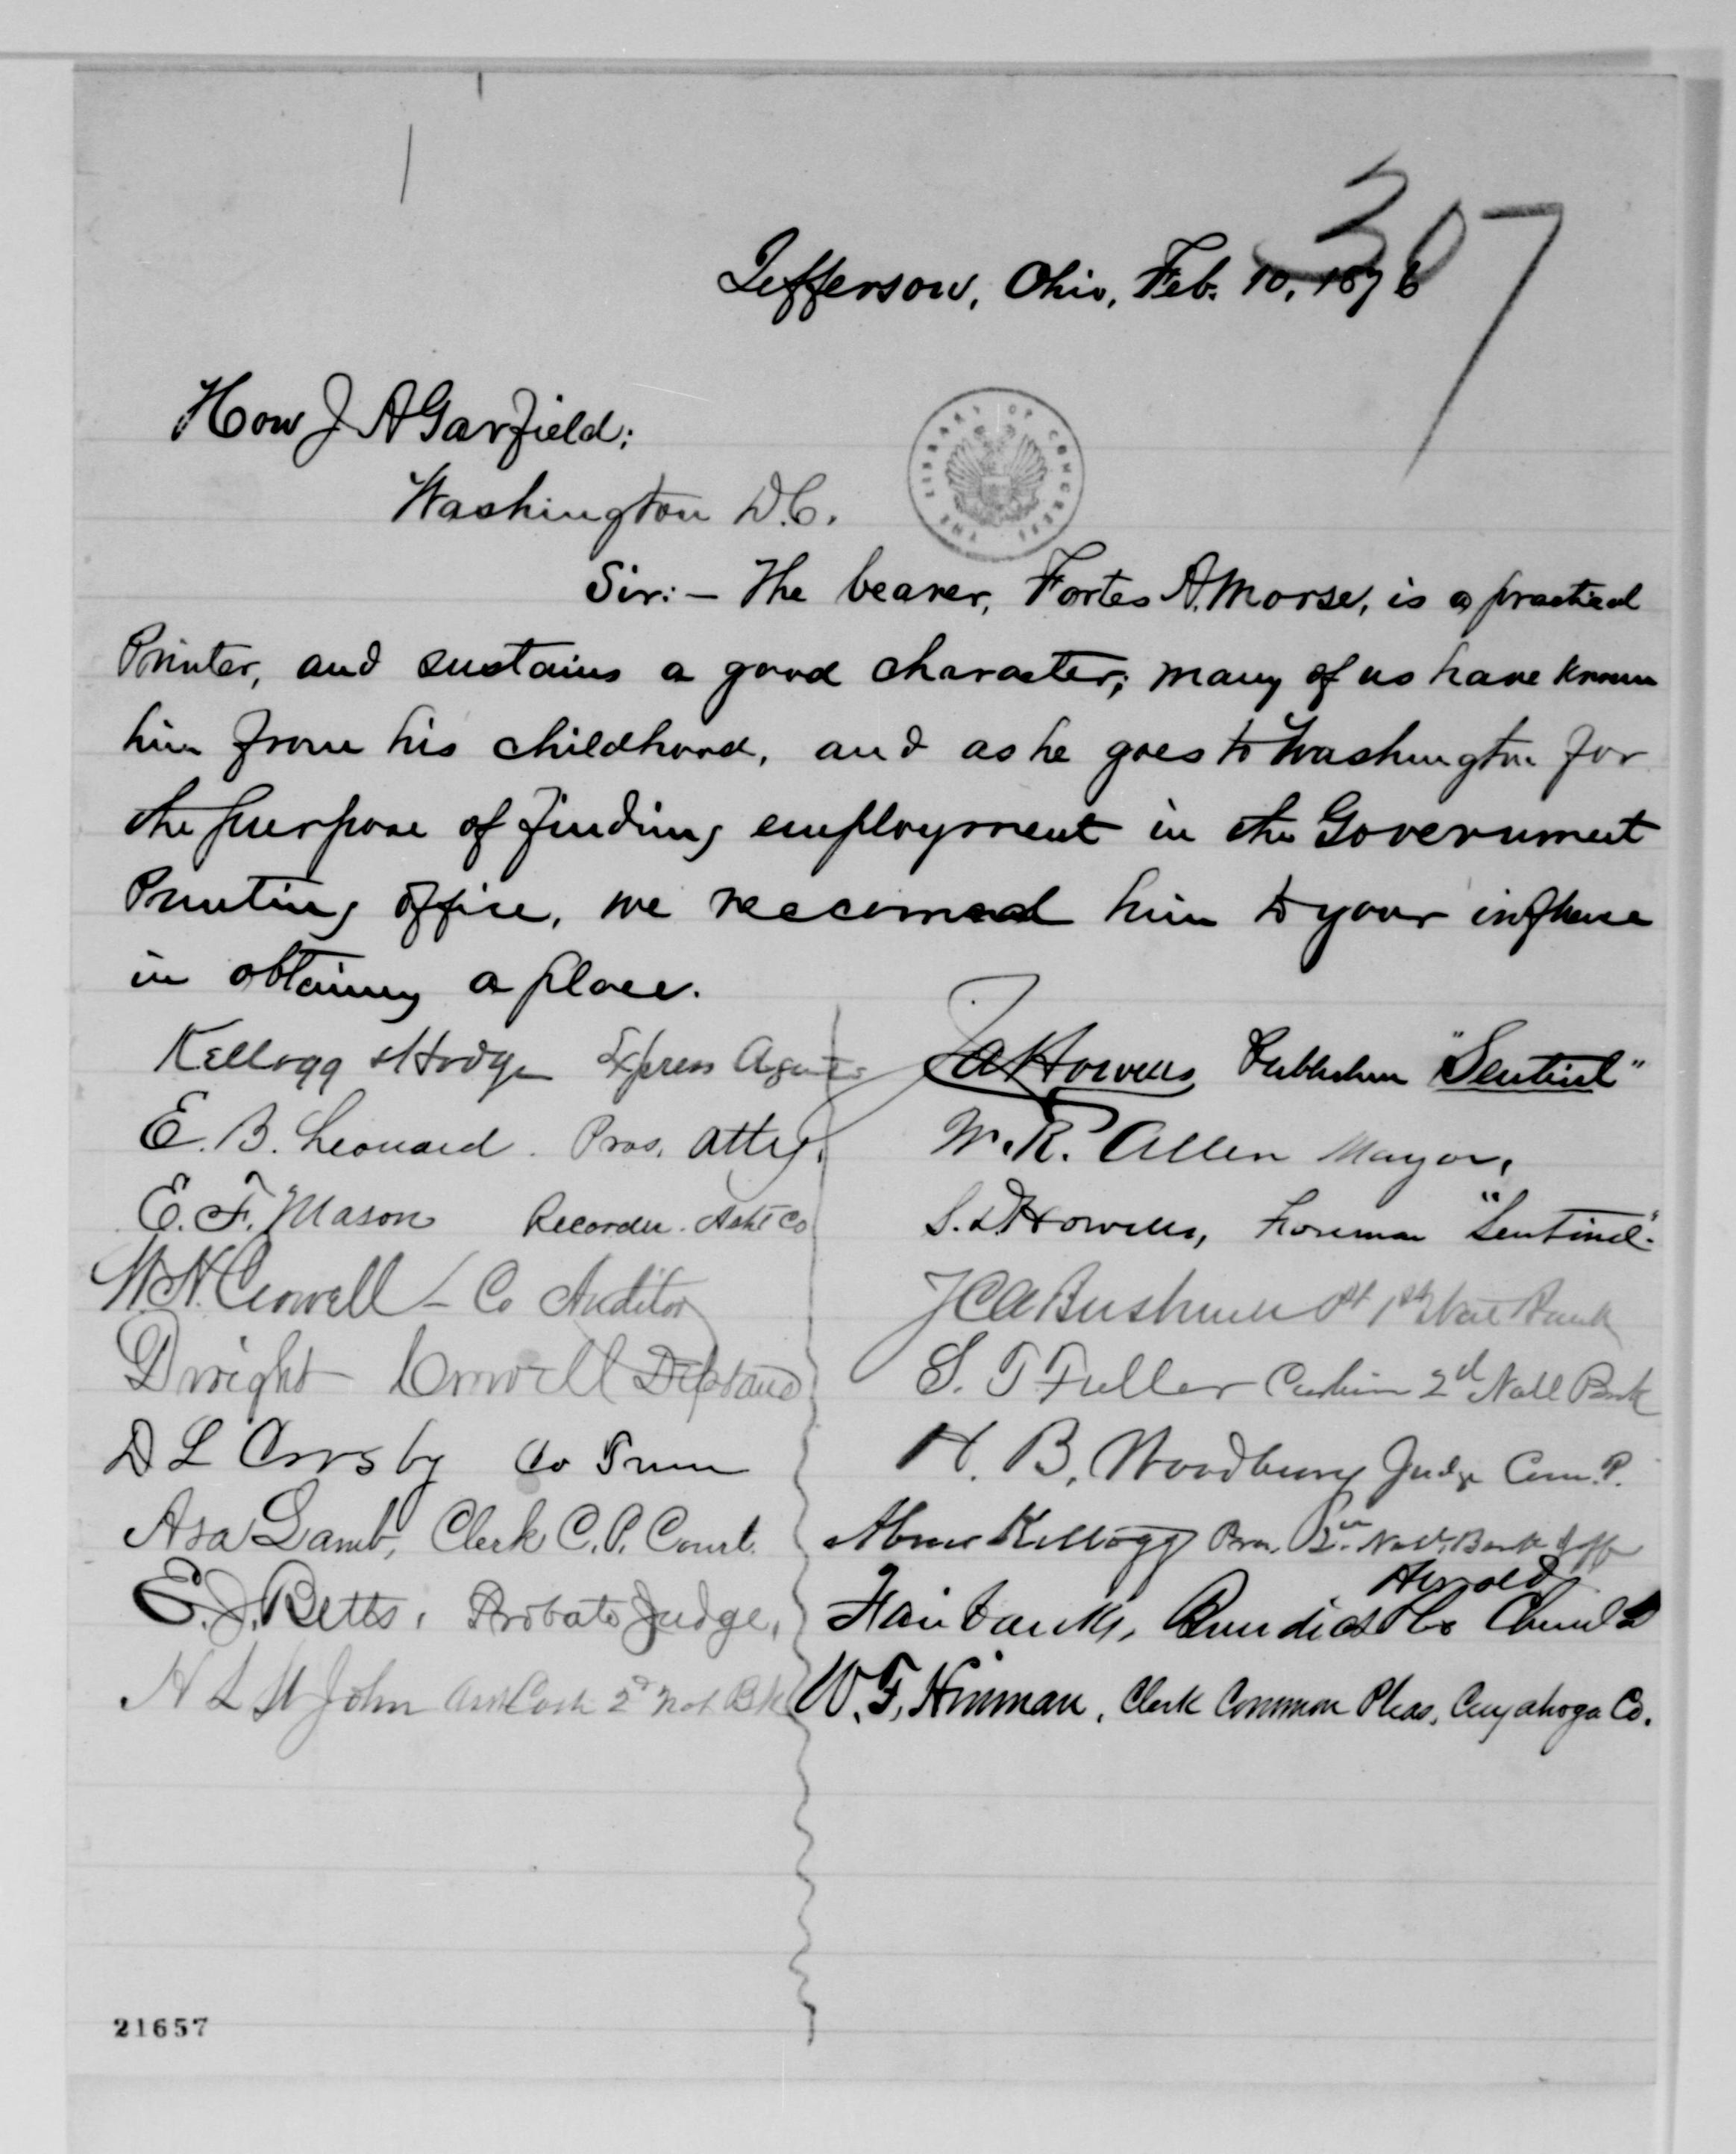 307
Jefferson, Ohio, Feb. 10, 1876
Hon J A Garfield:
THE LIBRARY OF CONGRESS
Washington D.C.
Sir:— The bearer, Fortes A. Morse, is a practical
Printer, and sustains a good character; many of us have known
him from his childhood, and as he goes to Washington for
the purpose of finding employment in the Government
Printing office, we reccomend him to your influence
in obtaining a place.
Kellogg & Hodge Express Agents
E. B. Leonard. Pros. Atty.
E. F. Mason Recorder. Asht Co
W. N. Crowell – Co Auditor
Dwight Crowell
D L Crosby Co
Asa Lamb, Clerk C. P. Court.
E. J. Betts, Probate Judge,
H L St John Asst Cash 2d Nat Bk
J A Howells Publisher "Sentinel"
W. R. Allen Mayor,
S. D. Howells, Foreman "Sentinel"
J C A Bushnell Pt 1st Nat Bank
S. T Fuller Cashier 2d Natl Bank
H. B. Woodbury Judge Com. P.
Abner Kellogg Pres. 2nd Natl. Bank Jeff
Herald
Fairbanks, Benedict & Co Clevel'd
W. F. Hinman, Clerk Common Pleas, Cuyahoga Co.
21657